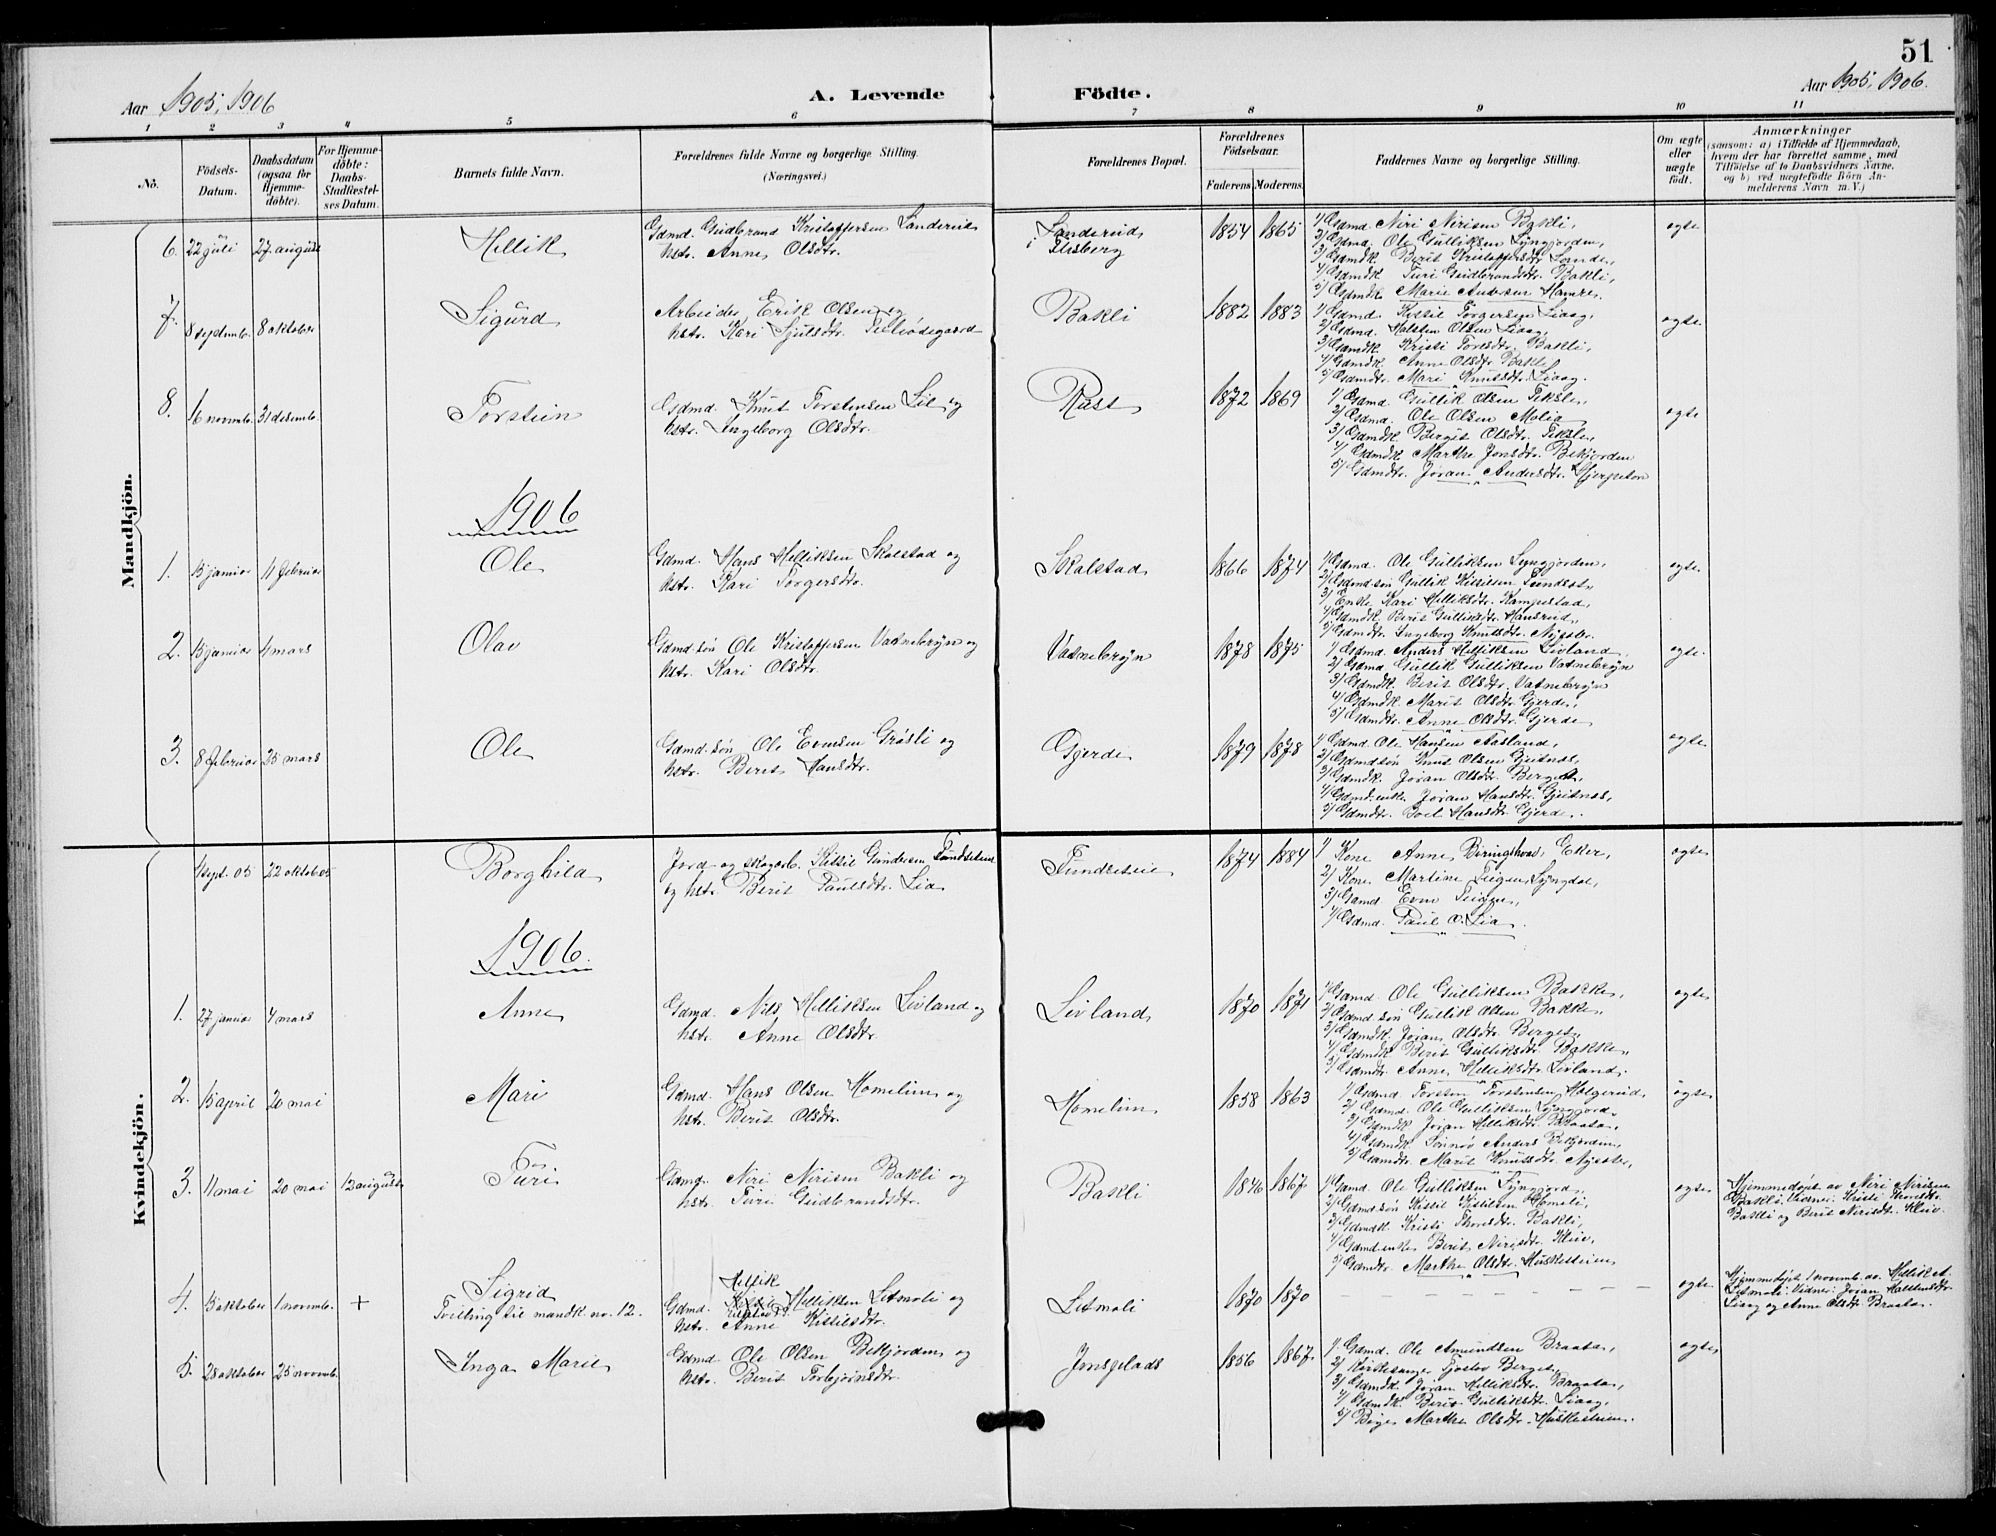 51
Aar 1905, 1906
A. Levende
Födte.
Aar 1905, 1906.
1 2 3 4 5 6 7 8 9 10 11
No.
Födsels-
Datum.
Daabsdatum
(ogsaa for
Hjemme-
döbte).
For Hjemme-
döbte:
Daabs-
Stadfæstel-
ses Datum.
Barnets fulde Navn.
Forældrenes fulde Navne og borgerlige Stilling.
(Næringsvei.)
Forældrenes Bopæl.
Forældrenes
Födselsaar.
Faderens Moderens
Faddernes Navne og borgerlige Stilling.
Om ægte
eller
uægte
födt.
Anmærkninger
(saasom: a) i Tilfælde af Hjemmedaab,
hvem der har forrettet samme, med
Tilföielse af to Daabsvidners Navne,
og b) ved uægtefödte Börn An-
melderens Navn m. V.)
Mandkjön.
6. 22 juli 27 august Hellik
Gdmd. Gudbrand Kristoffersen Sanderud
hstr. Anne Olsdtr.
Sanderud
i Flesberg
1854 1865
1/ Gdmd. Niri Nirisen Bakli,
2/ Gdmd. Ole Gulliksen Lyngjorden,
3/ Gdmdk. Berit Kristoffersdtr. Sande,
4/ Gdmdk. Turi Gudbrandsdtr. Bakli,
5/ Gdmdk. Marie Andersen
ægte
7. 8 septemb. 8 oktober Sigurd
Arbeider Erik Olsen og
hstr. Kari Gjulsdtr.
Bakli
1882 1883
1/ Gdmd. Kittil Torgersen Liaag,
2/ Gdmd. Halsten Olsen Liaag,
3/ Gdmdk. Kristi Toresdtr. Bakli,
4/ Gdmdk. Anne Olsdtr. Bakli
5/ Gdmdtr. Mari Knutsdtr. Liaag.
ægte
8. 16 novemb. 31 desemb. Torstein
Gdmd. Knut Torstensen Lie og
hstr. Ingeborg Olsdtr.
Rust
1872 1869
1/ Gdmd. Gullik Olsen Teksle,
2/ Gdmd. Ole Olsen Molia,
3/ Gdmdk. Bergit Olsdtr. Teksle,
4/ Gdmdk. Marthe Jonsdtr. Bekjorden
5/ Gdmdtr. Jøran Andersdtr.
ægte
1906
1. 15 januar 11 februar Ole
Gdmd. Hans Helliksen Skalstad og
hstr. Kari Torgersdtr.
Skalstad
1866 1874
1/ Gdmd. Ole Gulliksen Lyngjorden,
2/ Gdmd.søn Gullik Kittilsen
3/ Enke Kari Helliksdtr. Kampestad,
4/ Gdmdk. Berit Gulliksdtr. Hansrud,
5/ Gdmdtr. Ingeborg Knutsdtr.
ægte
2. 15 januar 4 mars Olav
Gdmd.søn Ole Kristoffersen Vatnebryn og
hstr. Kari Olsdtr.
Vatnebryn
1878 1875
1/ Gdmd. Anders Helliksen Livland,
2/ Gdmd. Gullik Gulliksen Vatnebryn
3/ Gdmdk. Berit Olsdtr. Vatnebryn
4/ Gdmdk. Marit Olsdtr. Gjerde,
5/ Gdmdtr. Anne Olsdtr. Gjerde
ægte.
3. 8 februar 25 mars Ole
Gdmd.søn Ole Evensen Grøsli og
hstr. Berit Hansdtr.
Gjerde
1879 1878
1/ Gdmd. Ole Hansen Aasland,
2/ Gdmdsøn Knut Olsen Gjeitnes,
3/ Gdmdk. Jøran Olsdtr. Berget,
4/ Gdmd.enke Jøran Hansdtr. Gjeitnes,
5/ Gdmdtr. Boel Hansdtr. Gjerde.
ægte
Kvindekjön.
4 sept. 05 22 oktob. 05 Borghild
Jord og skogarb. Kittil Gundersen Tundseteie
og hst. Berit Paulsdtr. Lia
Tundseteie
1874 1884
1/ Kone Anne Eker,
2/ Kone Martine Teigen, Lyngdal,
3/ Gdmd Even Teigen,
4/ Gdmd. Paul O. Lia.
ægte
1906.
1. 27 januar 4 mars Anne
Gdmd. Nils Helliksen Livland og
hstr. Anne Olsdtr.
Livland
1870 1871
1/ Gdmd. Ole Gulliksen Bakke,
2/ Gdmd.søn Gullik Olsen Bakke,
3/ Gdmdk. Jøran Olsdtr. Berget,
4/ Gdmdk. Berit Gulliksdtr. Bakke,
5/ Gdmdtr. Anne Helliksdtr. Livland.
ægte
2. 15 april 20 mai Mari
Gdmd. Hans Olsen Homelien og
hstr. Berit Olsdtr.
Homelien
1858 1863
1/ Gdmd. Torsten Torstensen
2/ Gdmd. Ole Gulliksen Lyngjord,
3/ Gdmdk Jøran Helliksdtr. Braata,
4/ Gdmdk. Sønnøv Anders Bekjorden,
5/ Gdmdtr. Marit Knutsdtr.
ægte
3. 11 mai 20 mai 12 august Turi
Gdmd. Niri Nirisen Bakli og
hstr. Turi Gudbrandsdtr.
Bakli
1846 1867
1/ Gdmd. Ole Gulliksen Lyngjord,
2/ Gdmd.søn Kittil Kittilsen Homeli,
3/ Gdmdk. Kristi Thoresdtr. Bakli,
4/ Gdmd.enke Berit Nirisdtr. Kleiv,
5/ Gdmdtr. Marthe Olsdtr.
ægte
Hjemmedøpt av Niri Nirisen
Bakli. Vidner: Kristi Thoresdtr.
Bakli og Berit Nirisdtr. Kleiv.
4. 15 oktober 1 novemb. + Sigrid
Tvilling til mandk. no. 12.
Hellik
Gdmd. Helliksen Litmoli og
hstr. Anne Kittilsdtr.
Litmoli
1870 1870
ægte
Hjemmedøpt 1 novemb. av Hellik H.
Litmoli. Vidner: Jøran Halstensdtr.
Liaag og Anne Olsdtr. Braata.
5. 28 oktober 25 novemb. Inga Marie
Gdmd. Ole Olsen Bekjorden og
hstr. Berit Torbjørnsdtr.
Jonsplads
1856 1867
1/ Gdmd. Ole Amundsen Braata,
2/ Kirkesanger Tjostov Berget,
3/ Gdmdk. Jøran Helliksdtr. Braata,
4/ Gdmdk. Berit Gulliksdtr. Liaag,
5/ Pige Marthe Olsdtr.
ægte